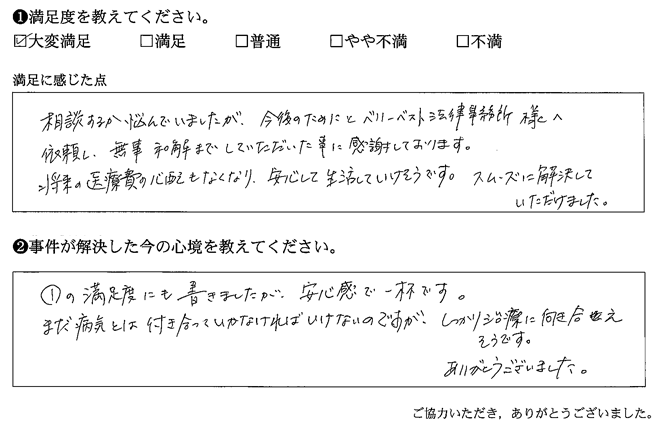 ❶満足度を教えてください。
☑大変満足 □満足 □普通 □やや不満 □不満
満足に感じた点
相談するか悩んでいましたが、今後のためにとベリーベスト法律事務所 様へ
依頼し、無事 和解までしていただいた事に感謝しております。
将来の医療費の心配もなくなり、安心して生活していけそうです。スムーズに解決して
いただけました。
❷事件が解決した今の心境を教えてください。
①の満足度にも書きましたが、安心感で一杯です。
まだ病気とは付き合っていかなければいけないのですが、しっかり治療に向き合え
そうです。
ありがとうございました。
ご協力いただき，ありがとうございました。